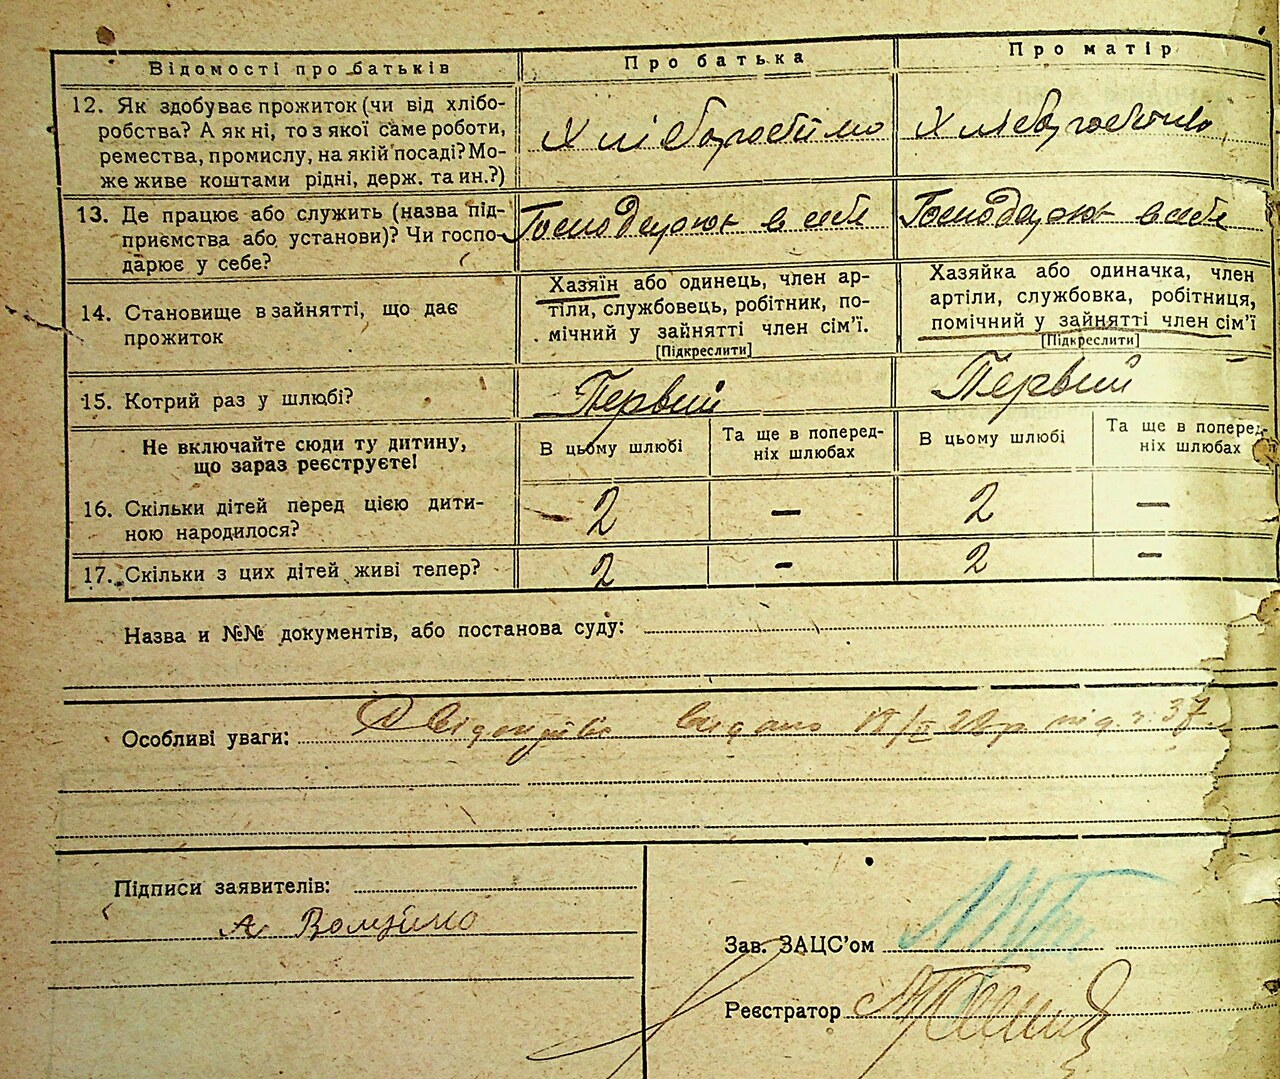 Відомості про батьків
Про батька
Про матір
12. Як здобуває прожиток (чи від хлібо-
робства? А як ні, то з якої саме роботи,
ремества, промислу, на якій посаді? Мо-
же живе коштами рідні, держ. та ин.?)
Хліборобством
Хліборобство
13. Де працює або служить (назва під-
приємства або установи)? Чи госпо-
дарює у себе?
Господарює в себе
Господарює в себе
14. Становище в зайнятті, що дає
прожиток
Хазяїн або одинець, член ар-
тіли, службовець, робітник, по-
мічний у зайнятті член сім'ї.
[Підкреслити]
Хазяйка або одиначка, член
артіли, службовка, робітниця,
помічний у зайнятті член сім'ї
[Підкреслити]
15. Котрий раз у шлюбі?
Первий
Первий
Не включайте сюди ту дитину,
що зараз реєструєте!
В цьому шлюбі
Та ще в поперед-
ніх шлюбах
В цьому шлюбі
Та ще в поперед-
ніх шлюбах
16. Скільки дітей перед цією дити-
ною народилося?
2
—
2
—
17. Скільки з цих дітей живі тепер?
2
-
2
—
Назва и №№ документів, або постанова суду:
Особливі уваги: видано 28р під ч. 37
Підписи заявителів:
А
Зав. ЗАЦС'ом
Реєстратор